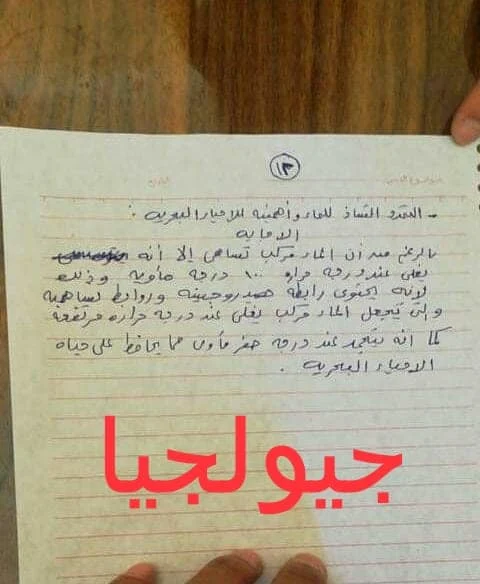 ١٣
- التمدد الشاذ للماء وأهميته للاحياء البحرية :
الاجابه
بالرغم من أن الماء مركب تساهمى إلا أنه
يغلى عند درجة حراره ١٠٠ درجه مئويه وذلك
لانه يحتوى رابطة هيدروجينيه وروابط تساهمية
والتى تجعل الماء مركب يغلى عند درجة حراره مرتفعة
كما انه يتجمد عند درجه صفر مئوى مما يحافظ على حياه
الاحياء البحريه .
جيولجيا